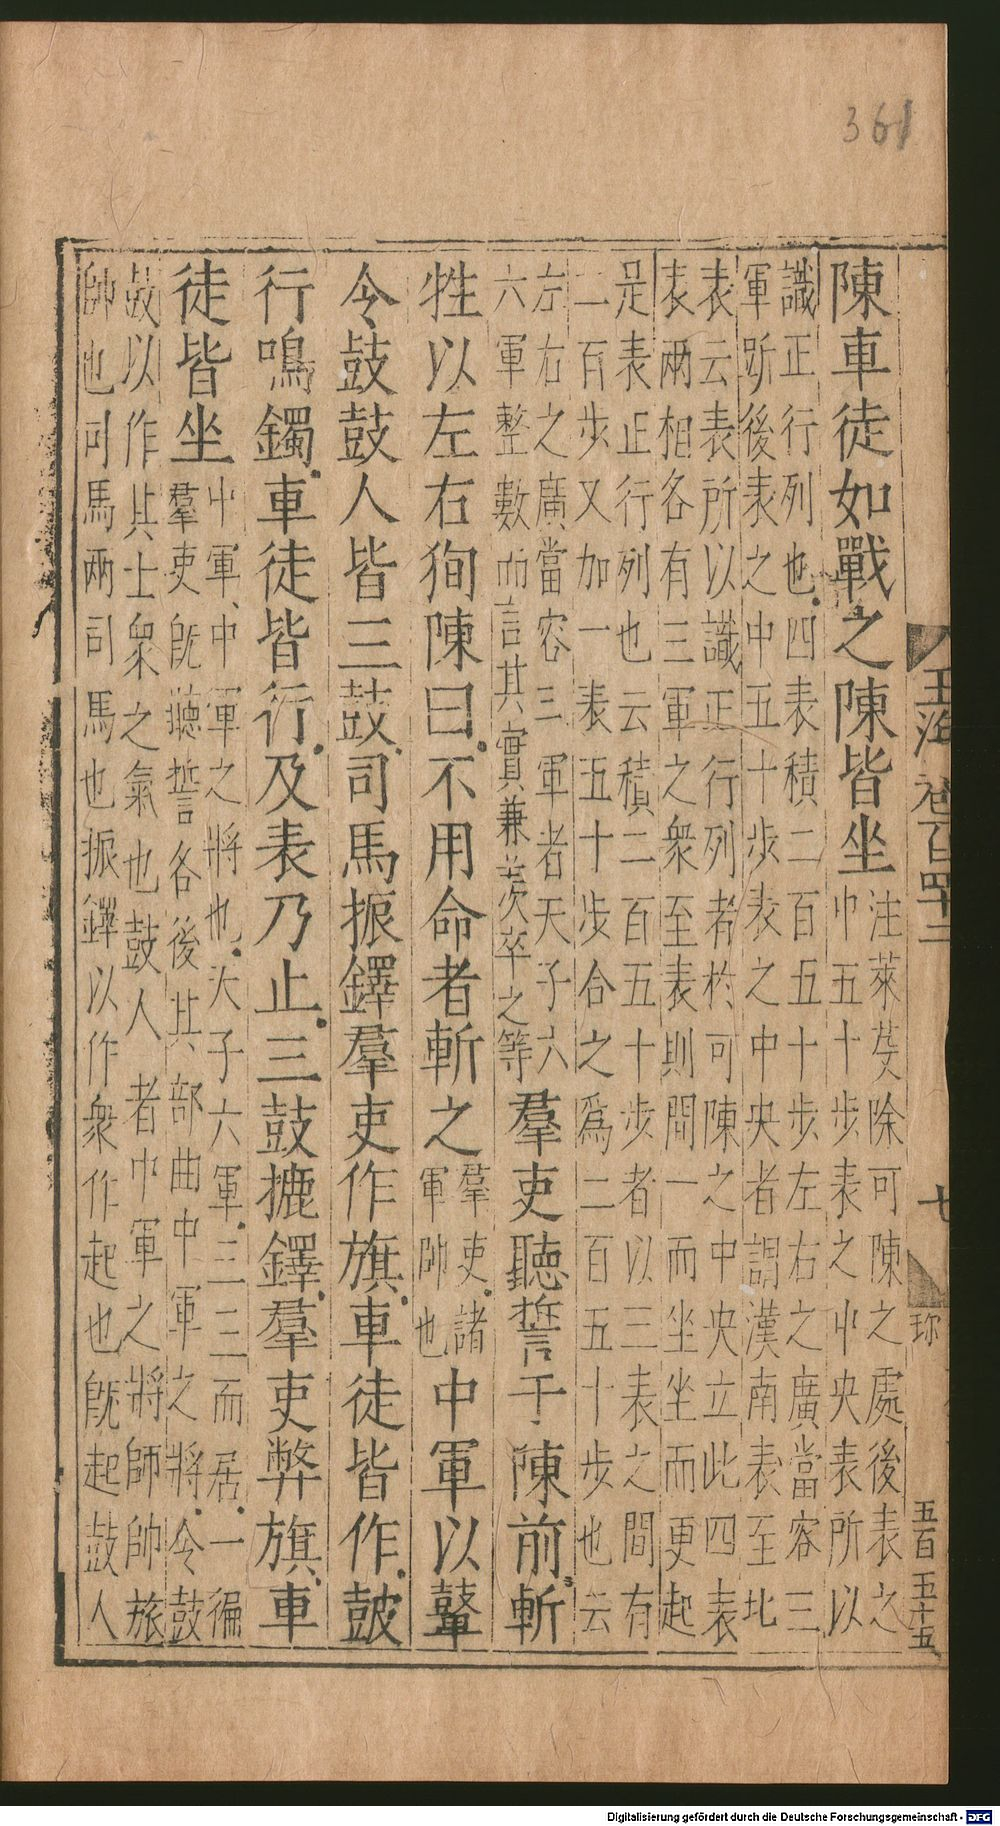 361
陳車徒如戰之陳皆坐
注萊芟除可陳之處後表之
中五十步表之中央表所以
識正行列也四表積二百五十步左右之廣當容三
軍趼後表之中五十步表之中央者謂漢南表至北
表云表所以識正行列者於可陳之中央立此四表
表兩相各有三軍之衆至表則間一而坐坐而更起
是表正行列也云積二百五十步者以三表之間有
二百步又加一表五十步合之爲二百五十步也云
左右之廣當容三軍者天子六
六軍整數而言其實兼羨卒之等
羣吏聽誓于陳前斬
牲以左右徇陳曰不用命者斬之
羣吏諸
軍帥也
中軍以鼙
令鼓鼓人皆三鼓司馬振鐸羣吏作旗車徒皆作鼓
行鳴鐲車徒皆行及表乃止三鼓摝鐸羣吏弊旗車
徒皆坐
中軍中軍之將也天子六軍三三而居一徧
羣吏旣聽誓各復其部曲中軍之將令鼓
鼓以作其士衆之氣也鼓人者中軍之將師帥旅
帥也司馬兩司馬也振鐸以作衆作起也旣起鼓人
玉海卷百四十二
七
珎
五百五十五
Digitalisierung gefördert durch die Deutsche Forschungsgemeinschaft - DFG